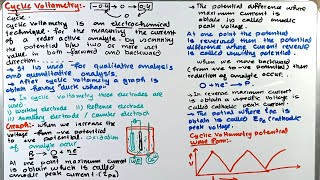 Cyclic Voltametry:-
-0.4 → -0.4
Cycle:
Cyclic voltametry is an electrochemical
technique for the measuring the current
of a redox active analyte by scanning
the potential b/w two or more set
value in both forward and backward
direction.
→ It is used for qualitative analysis
and quantitative analysis.
→ After cyclic voltametry a graph is
obtain having "duck shape"
→ In cyclic voltametry three electrodes are
used
i) Working electrode ii) Reference electrode
iii) Auxiliary electrode / Counter electrode
Graph:- when we increase the
voltage from -ve potential
to +ve potential oxidation
of analyte occur
R → O + ne⁻
At one point maximum current
is obtain which is called
anodic peak current (ipa)
→ The potential difference where
maximum current is
obtain is called anodic
peak voltage.
→ At one point the potential
is reversed then the potential
difference where current reversed
is called switching potential.
→ when we move backward
(from +ve to -ve potential) then
reduction of analyte occur.
O + ne⁻ → R
→ In reverse maximum current
is obtain is called
cathodic peak current.
→ The potential where ipc is
obtain is called Epc (cathodic
peak voltage)
Cyclic voltametry potential
Wave Form:-